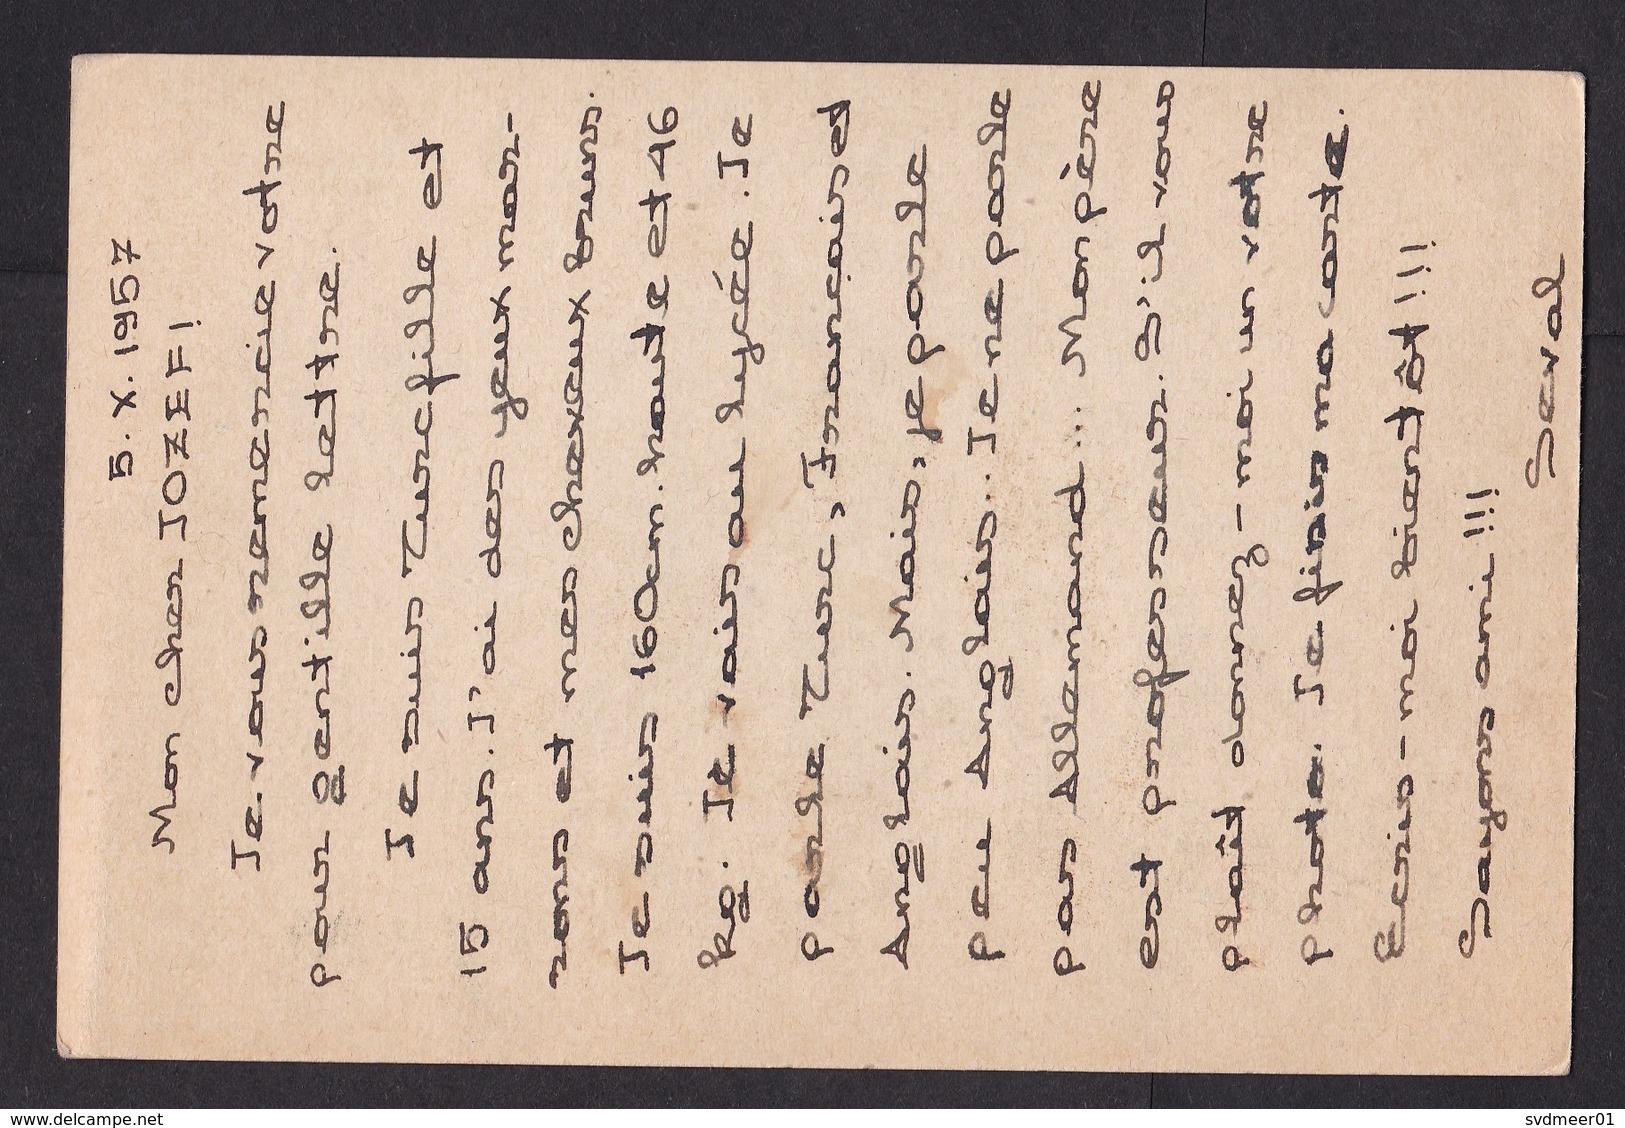 5.X.1957
Mon cher JOZEF!
Je vous remercie votre
pour gentille lettre.
Je suis Turcfille et
15 ans. J'ai des yeux mar-
rons et mes cheveux bruns.
Je suis 160cm. haute et 46
kg. Je vais au lycée. Je
parle Turc, Français et
Anglais. Mais, je parle
peu Anglais.. Je ne parle
pas Allemand... Mon père
est professeur. S'il vous
plaît donnez-moi un votre
photo. Je finis ma carte.
Ecris-moi bientôt!!!
Soyons ami!!!
Seval
delcampe.net
svdmeer01